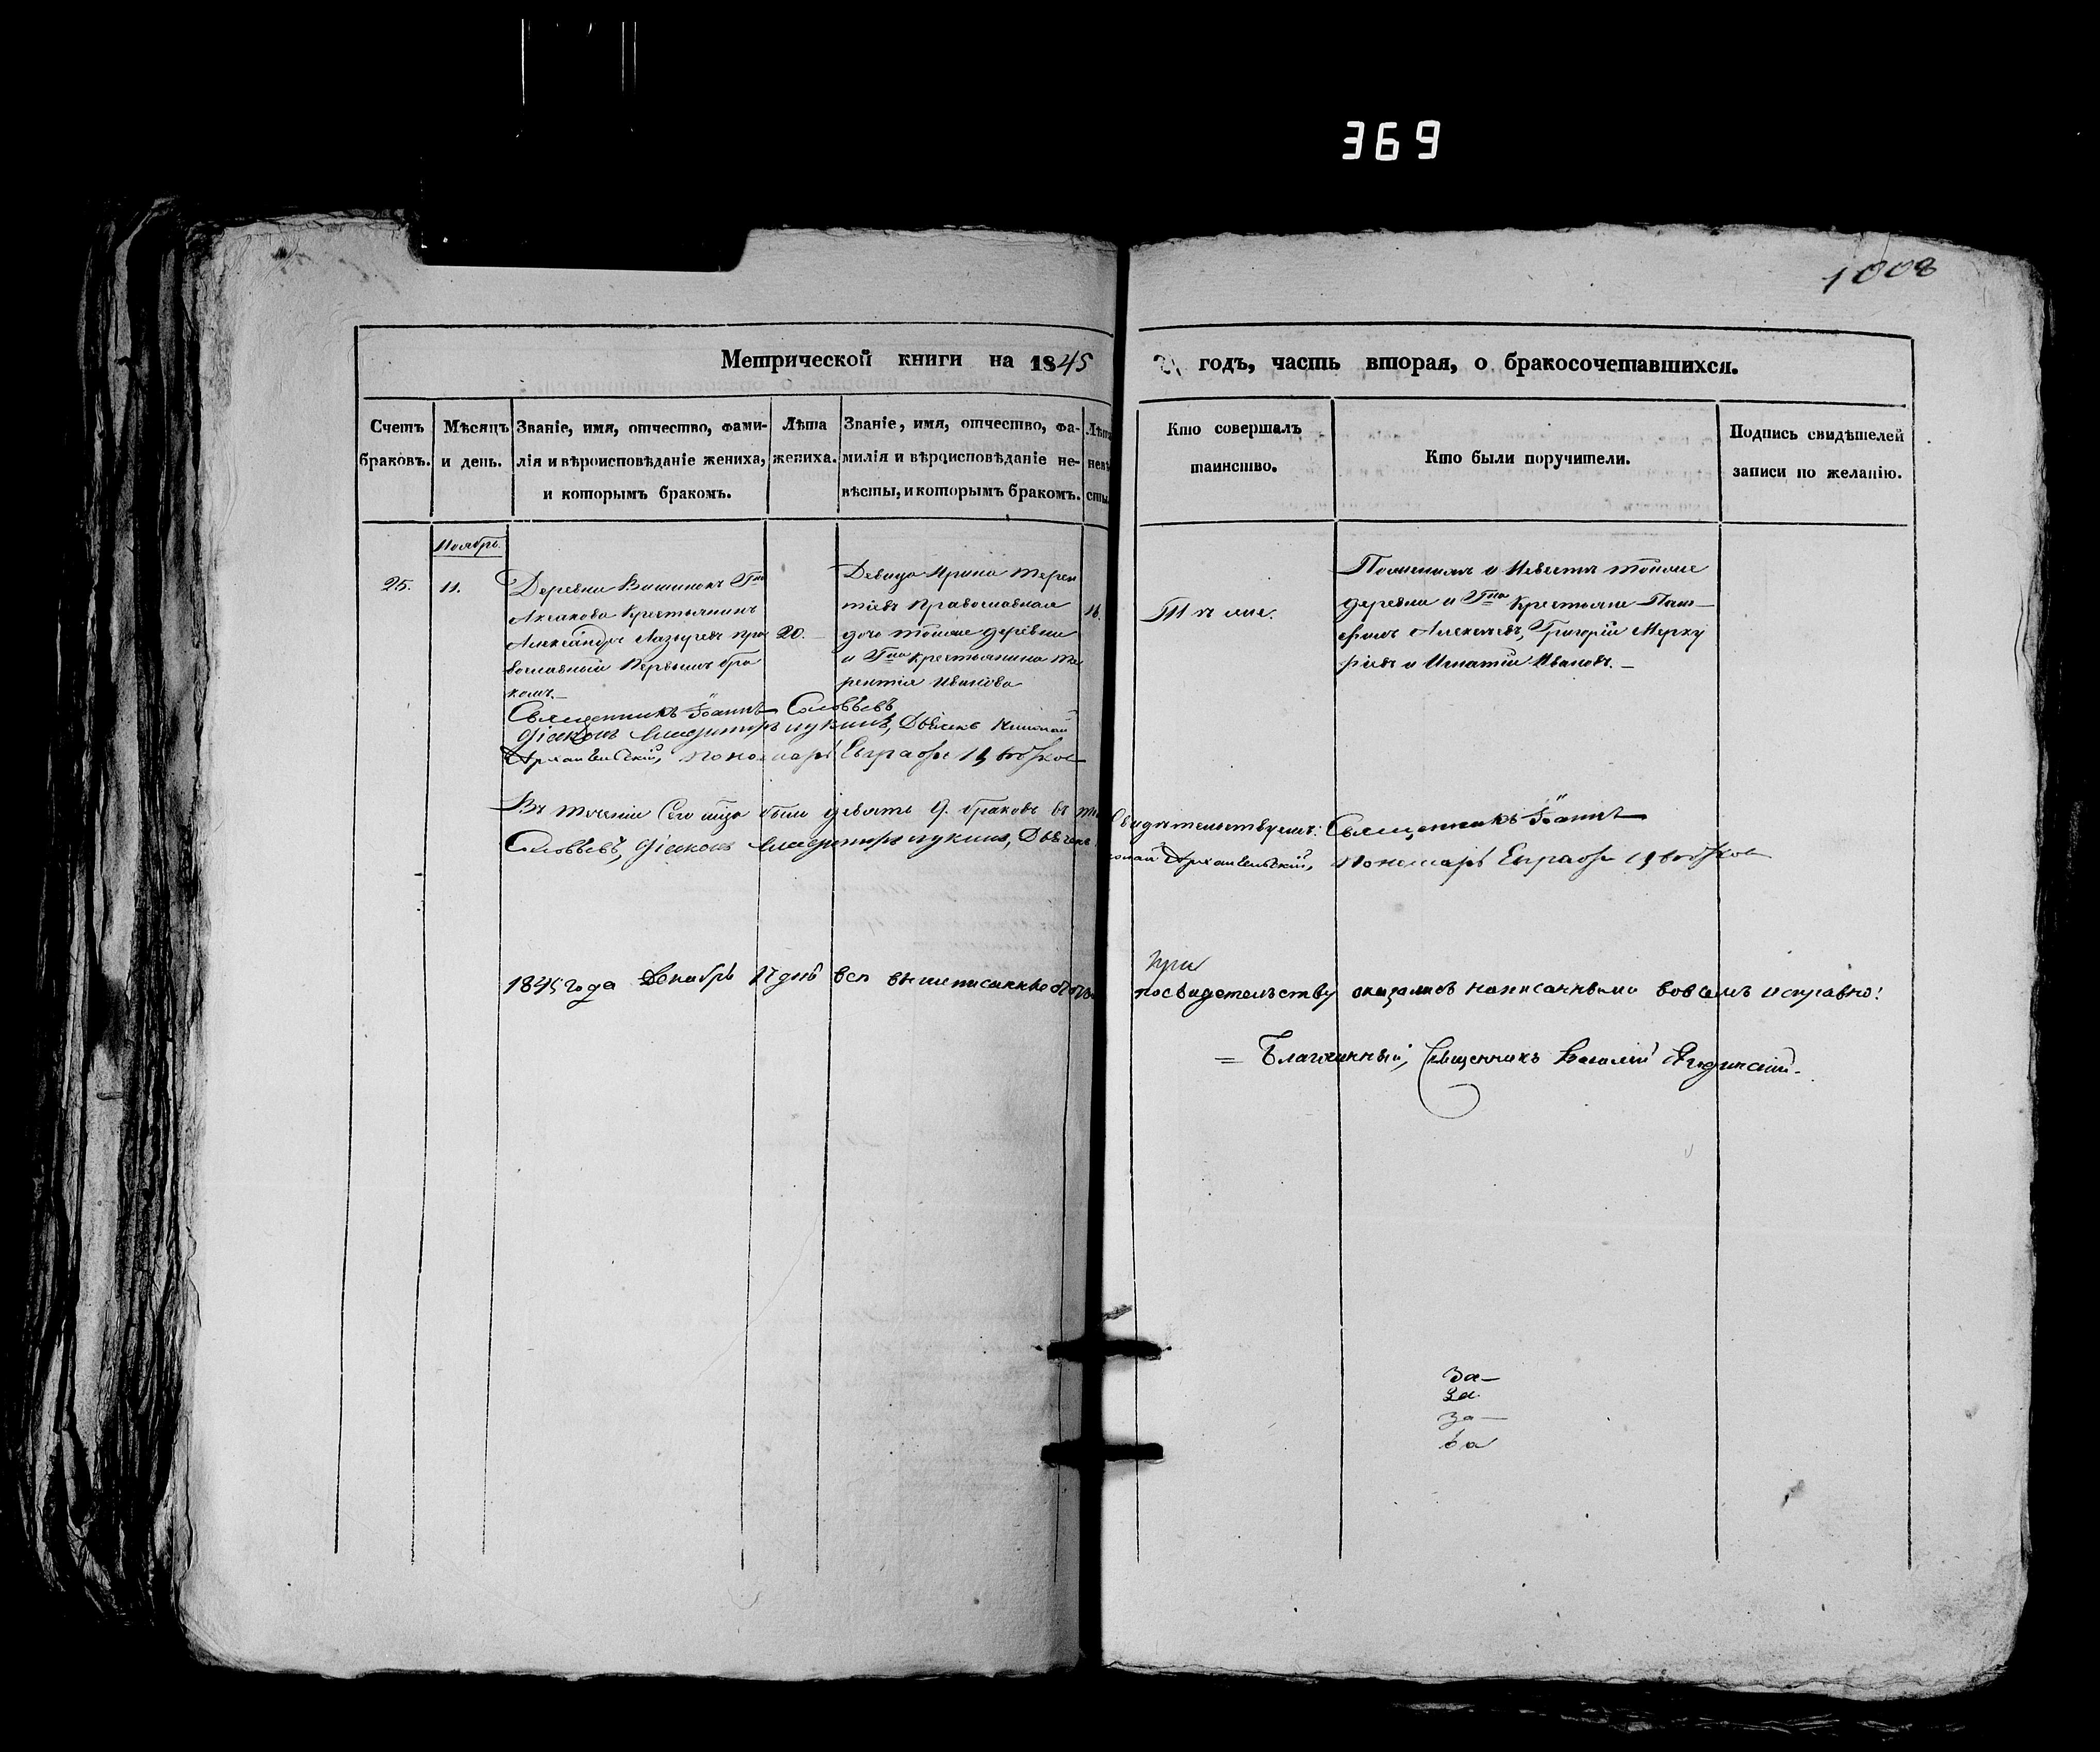 369
1008
Метрической книги на 1845 годъ, часть вторая, о бракосочетавшихся.
Счетъ браковъ.
Мѣсяцъ и день.
Званіе, имя, отчество, фами-
лія и вѣроисповѣданіе жениха,
и которымъ бракомъ.
Лѣта
жениха.
Званіе, имя, отчество, фа-
милія и вѣроисповѣданіе не-
вѣсты, и которымъ бракомъ.
Лѣта
невѣ
сты.
Кто совершалъ
таинство.
Кто были поручители.
Подпись свидѣтелей
записи по желанію.
Ноябрь.
25.
11.
Деревни Г на
Аксакова Крестьянинъ
Александръ Лазыревъ пра
вославный Первымъ бра
комъ.
20.
Девица Ирина Терен
тіева Православная
дочь тойже деревни
и Г на крестьянина Те
рентія Иванова
16.
Тѣ же.
По женихѣ и Невестѣ тойже
деревни и Г на Крестьяне Пар-
фенъ Алексеевъ, Григорій Мерку
ріевъ и Игнатій Ивановъ.
Священникъ Іоаннъ Соловьевъ
Діаконъ Дьячекъ Николай
Архангельскій, пономарь Евграфъ
Въ теченіи Сего мца было девять 9. браковъ въ
Свидѣтельствуемъ: Священникъ Іоаннъ
Соловьевъ, Діаконъ Дьячекъ
Архангельскій, Пономарь Евграфъ
При
1845 года Декабрь 17 днь все вышеписанное
посвидетельству оказалось написаннымъ вовсемъ исправно!
= Благочинный, Священникъ Василій
За-
За
За-
ва